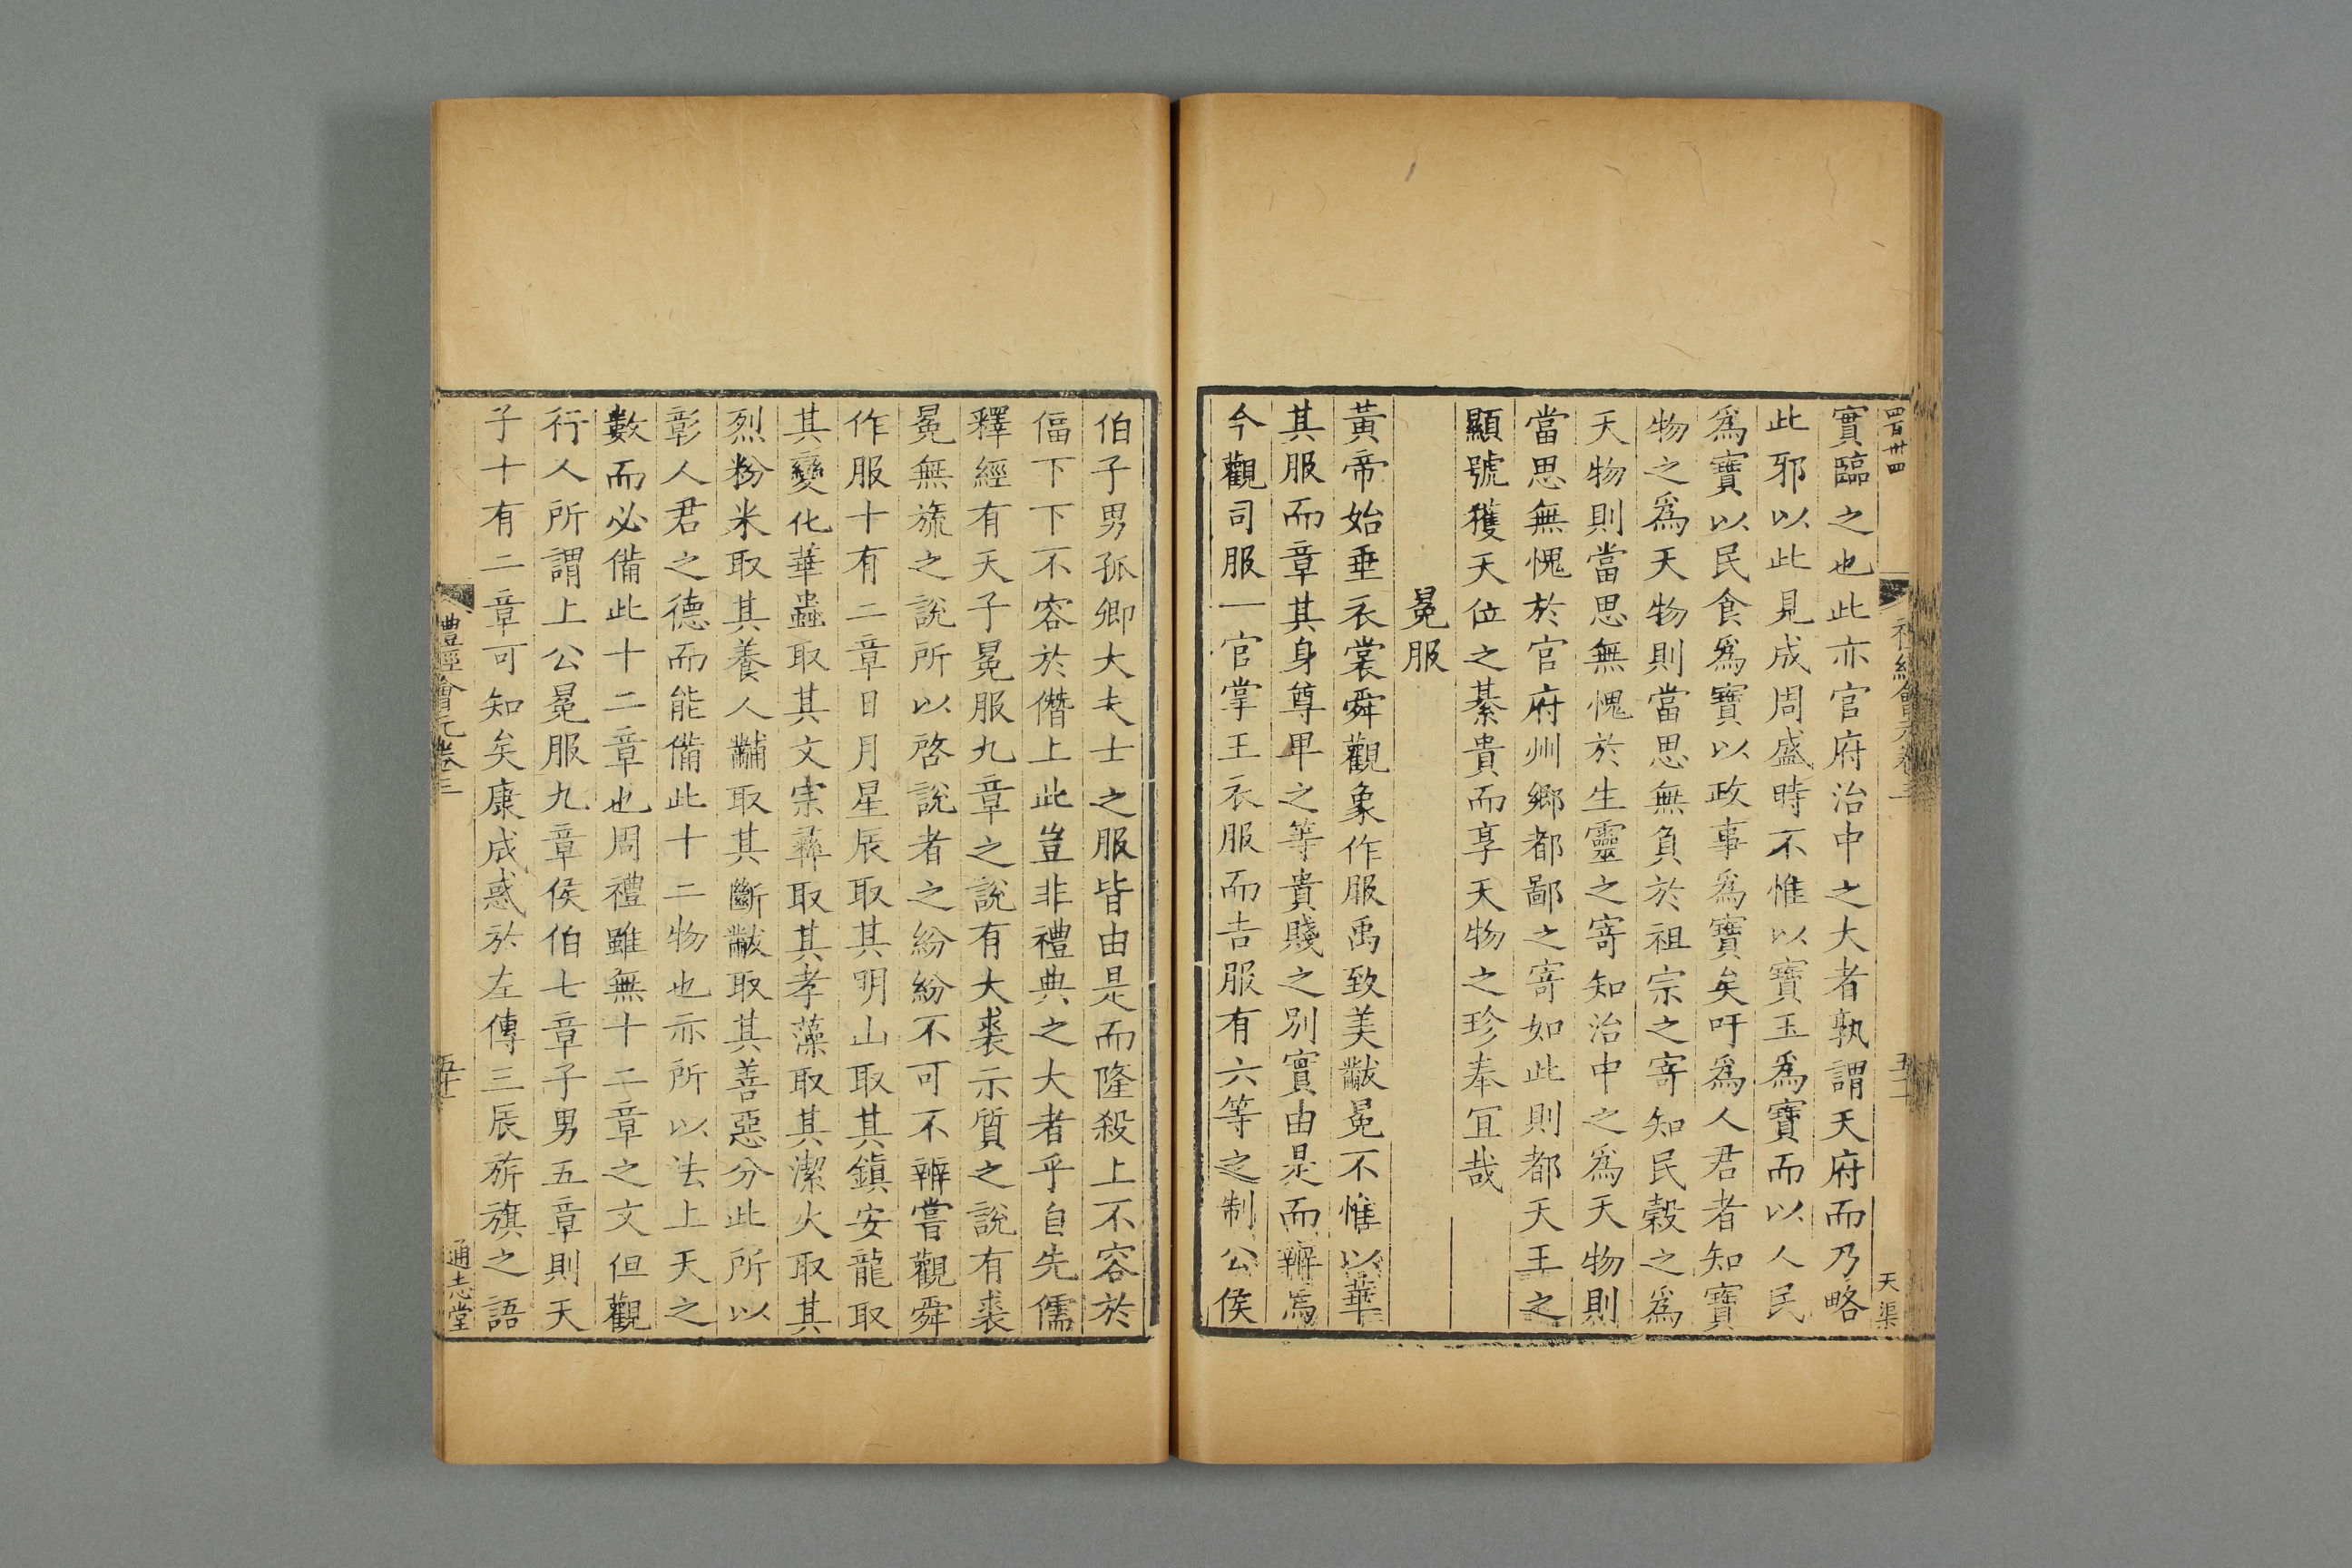 四百卅四
天渠
實臨之也此亦官府治中之大者孰謂天府而乃略
此邪以此見成周盛時不惟以寶玉爲寶而以人民
爲寶以民食爲寶以政事爲寶矣吁爲人君者知寶
物之爲天物則當思無負於祖宗之寄知民穀之爲
天物則當思無愧於生靈之寄知治中之爲天物則
當思無愧於官府州鄉都鄙之寄如此則都天王之
顯號獲天位之綦貴而享天物之珍奉冝哉
冕服
黃帝始垂衣裳舜觀象作服禹致美黻冕不惟以華
其服而章其身尊卑之等貴賤之別實由是而辨焉
今觀司服一官掌王衣服而吉服有六等之制公侯
伯子男孤卿大夫士之服皆由是而隆殺上不容於
偪下下不容於僭上此豈非禮典之大者乎自先儒
釋經有天子冕服九章之說有大裘示質之說有裘
冕無旒之說所以啓說者之紛紛不可不辨嘗觀舜
作服十有二章日月星辰取其明山取其鎮安龍取
其變化華蟲取其文宗彝取其孝藻取其潔火取其
烈粉米取其養人黼取其斷黻取其善惡分此所以
彰人君之德而能備此十二物也亦所以法上天之
數而必備此十二章也周禮雖無十二章之文但觀
行人所謂上公冕服九章侯伯七章子男五章則天
子十有二章可知矣康成惑於左傳三辰旂旗之語
禮經會元卷三
通志堂